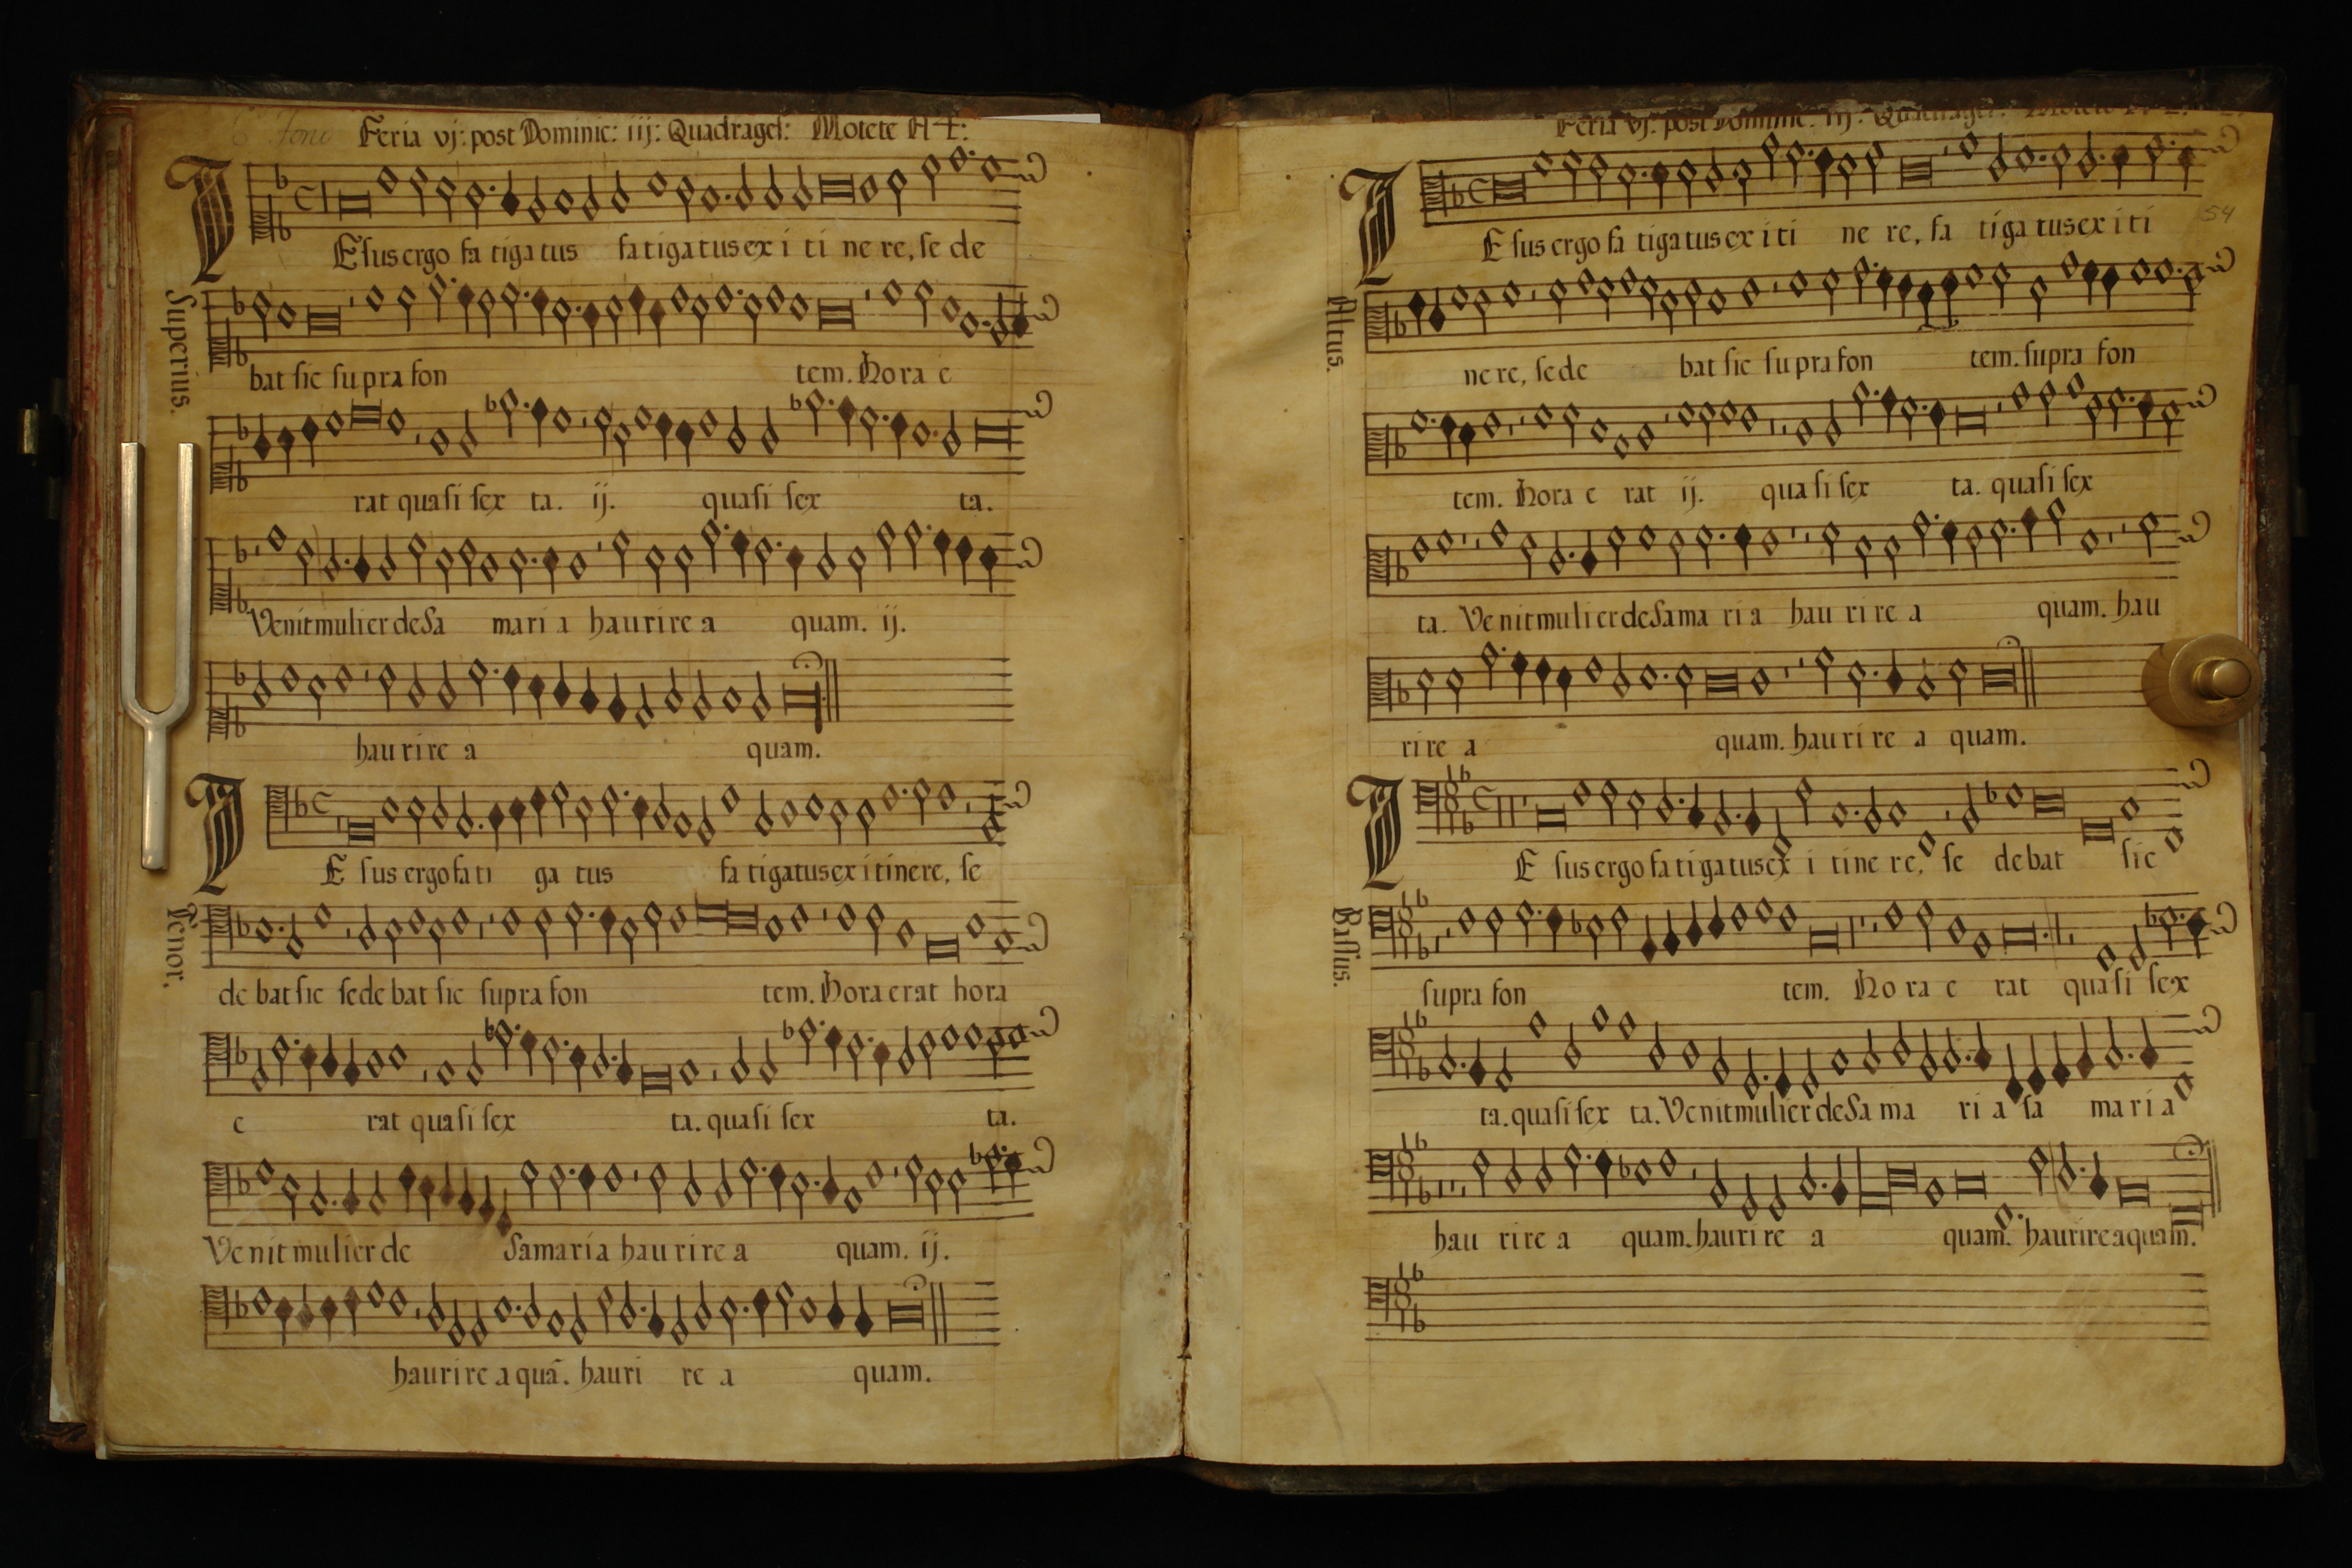 6º Tono Feria vj: post Dominic: iij: Quadrages: Motete A 4:
Superius.
IEsus ergo fa tiga tus fatigatus ex i ti ne re, se de
bat sic supra fon tem. Hora e
rat quasi sex ta. ij. quasi sex ta.
Venit mulier de Sa mari a haurire a quam. ij.
haurire a quam.
Tenor.
IE sus ergo fa ti ga tus fa tigatus ex itinere, se
de bat sic sede bat sic supra fon tem. Hora erat hora
e rat quasi sex ta. quasi sex ta.
Venit mulier de Samaria haurire a quam. ij.
haurire a quã. hauri re a quam.
Feria vj: post Dominic: iij: Quadrages: Motete
54
Altus.
IE sus ergo fa tigatus ex i ti ne re, fa tiga tus ex i ti
nere, sede bat sic supra fon tem. supra fon
tem. Hora e rat ij. quasi sex ta. quasi sex
ta. Venit mulier de Sama ri a hau ri re a quam. hau
rire a quam. hauri re a quam.
Bassus.
IE sus ergo fa tigatus ex i tine re, se debat sic
supra fon tem. Ho ra e rat quasi sex
ta. quasi sex ta. Venit mulier de Sa ma ri a sa maria
hau rire a quam. haurire a quam. haurire a quam.